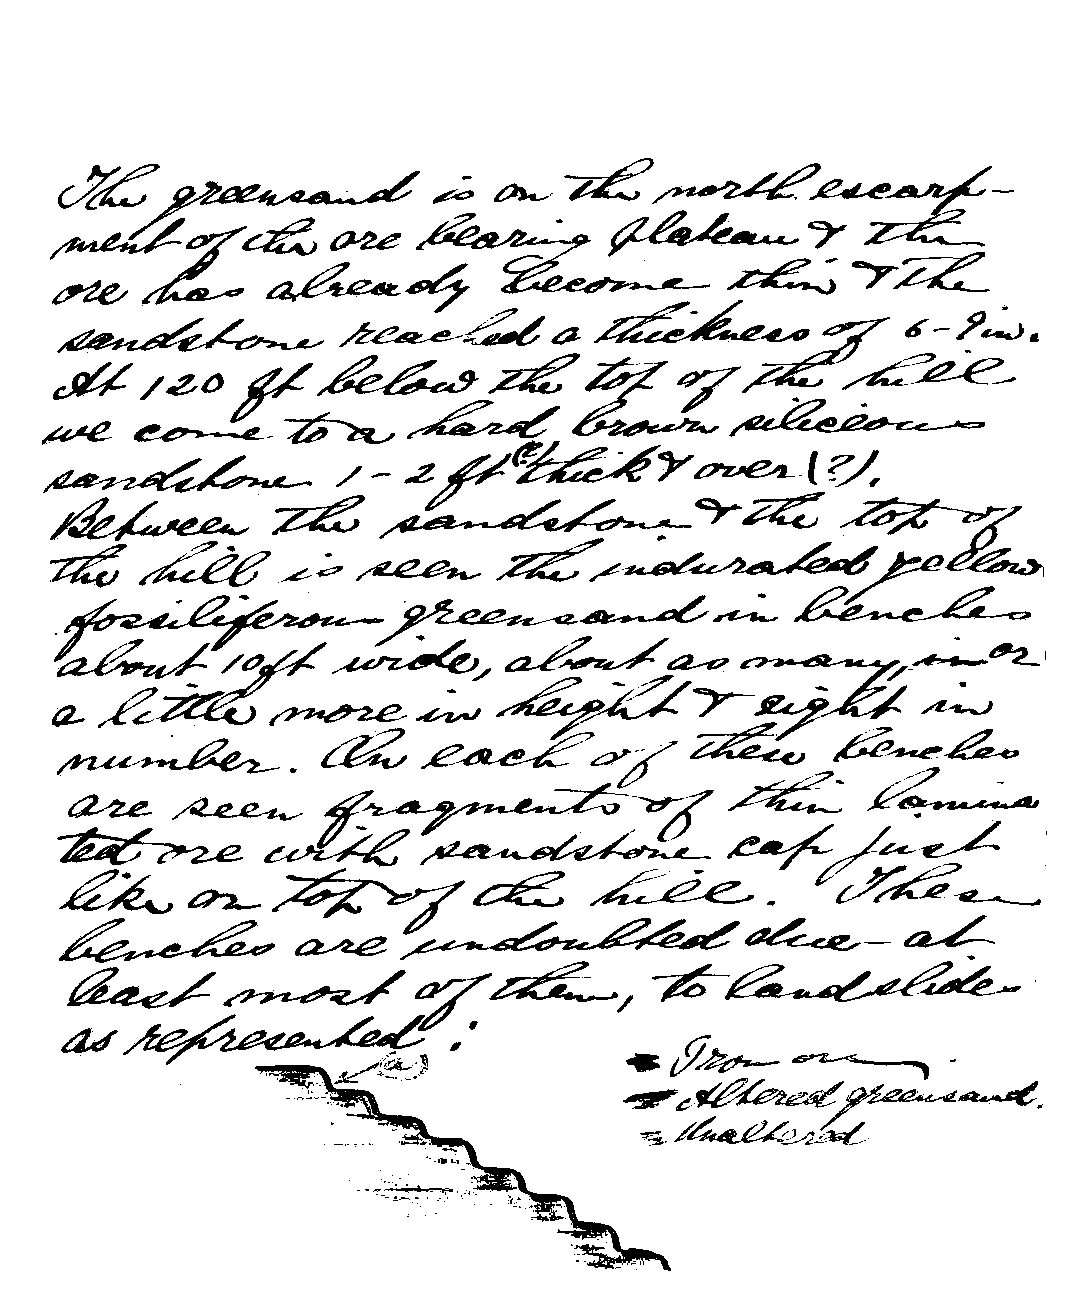 The greensand is on the north escarp-
ment of the ore bearing plateau & the
ore has already become thin & the
sandstone reached a thickness of 6-9 in.
At 120 ft below the top of the hill
we come to a hard brown silicious
sandstone 1-2 ft (?) thick & over (?).
Between the sandstone & the top of
the hill is seen the indurated yellow
fossiliferous greensand in benches
about 10 ft wide, about as many, in or
a little more in height & eight in
number. On each of these benches
are seen fragments of thin lamina
ted ore with sandstone cap just
like on top of the hill. These
benches are undoubted due - at
least most of them, to landslides
as represented :
(a)
Iron ore
Altered greensand.
Unaltered